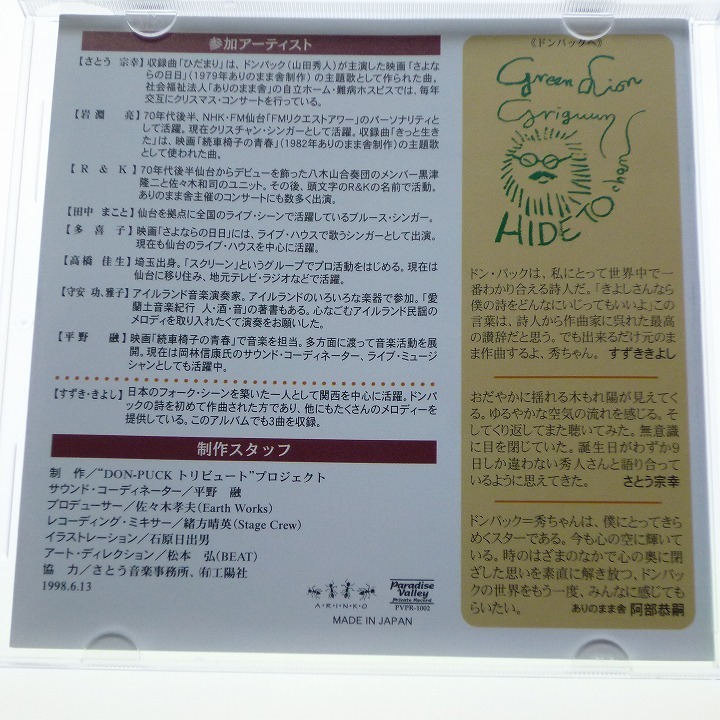 参加アーティスト
【さとう 宗幸】収録曲「ひだまり」は、ドンパック(山田秀人)が主演した映画「さよな
らの日日」(1979年ありのまま舎制作)の主題歌として作られた曲。
社会福祉法人「ありのまま舎」の自立ホーム・難病ホスピスでは、毎年
交互にクリスマス・コンサートを行っている。
【岩淵 亮】70年代後半、NHK・FM仙台「FMリクエストアワー」のパーソナリティと
して活躍。現在クリスチャン・シンガーとして活躍。収録曲「きっと生き
た」は、映画「続車椅子の青春」(1982年ありのまま舎制作)の主題歌
として使われた曲。
【R & K】70年代後半仙台からデビューを飾った八木山合奏団のメンバー黒津
隆二と佐々木和司のユニット。その後、頭文字のR&Kの名前で活動。
ありのまま舎主催のコンサートにも数多く出演。
【田中 まこと】仙台を拠点に全国のライブ・シーンで活躍しているブルース・シンガー。
【多喜子】映画「さよならの日日」には、ライブ・ハウスで歌うシンガーとして出演。
現在も仙台のライブ・ハウスを中心に活躍。
【高橋 佳生】埼玉出身。「スクリーン」というグループでプロ活動をはじめる。現在は
仙台に移り住み、地元テレビ・ラジオなどで活躍。
【守安 功、雅子】アイルランド音楽演奏家。アイルランドのいろいろな楽器で参加。「愛
蘭土音楽紀行 人・酒・音」の著書もある。心なごむアイルランド民謡の
メロディを取り入れたくて演奏をお願いした。
【平野 融】映画「続車椅子の青春」で音楽を担当。多方面に渡って音楽活動を展
開。現在は岡林信康氏のサウンド・コーディネーター、ライブ・ミュージ
シャンとしても活躍中。
【すずき・きよし】日本のフォーク・シーンを築いた一人として関西を中心に活躍。ドンパ
ックの詩を初めて作曲された方であり、他にもたくさんのメロディーを
提供している。このアルバムでも3曲を収録。
制作スタッフ
制 作／“DON-PUCK トリビュート”プロジェクト
サウンド・コーディネーター／平野 融
プロデューサー／佐々木孝夫(Earth Works)
レコーディング・ミキサー／緒方晴英(Stage Crew)
イラストレーション／石原日出男
アート・ディレクション／松本 弘(BEAT)
協 力／さとう音楽事務所、㈲工陽社
1998.6.13
A・R・I・N・K・O
Paradise
Valley
Private Record
PVPR-1002
MADE IN JAPAN
《ドンパックへ》
Green Lion
HIDETO
ドン・パックは、私にとって世界中で一
番わかり合える詩人だ。「きよしさんなら
僕の詩をどんなにいじってもいいよ」この
言葉は、詩人から作曲家に呉れた最高
の讃辞だと思う。でも出来るだけ元のま
ま作曲するよ、秀ちゃん。 すずききよし
おだやかに揺れる木もれ陽が見えてく
る。ゆるやかな空気の流れを感じる。そ
してくり返してまた聴いてみた。無意識
に目を閉じていた。誕生日がわずか9
日しか違わない秀人さんと語り合って
いるように思えてきた。 さとう宗幸
ドンパック=秀ちゃんは、僕にとってきら
めくスターである。今も心の空に輝いて
いる。時のはざまのなかで心の奥に閉
ざした思いを素直に解き放つ、ドンパック
の世界をもう一度、みんなに感じても
らいたい。 ありのまま舎 阿部恭嗣